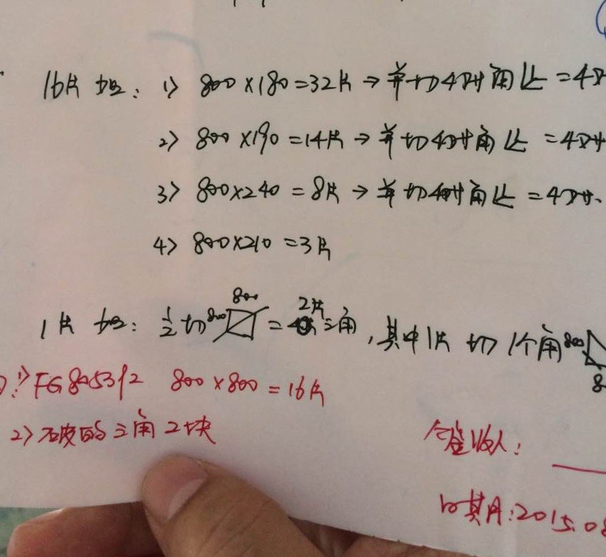 16片加: 1> 800×180=32片→并切4对角 =4对
2> 800×190=14片→并切4对角 =4对
3> 800×240=8片→并切4对角 =4对.
4> 800×210=3片
1片加: 1/2切 800 800 =2片三角,其中1片切1个角 800 8
1> FG805312 800×800=16片
2> 破的三角2块
签收人:
日期:2015.08